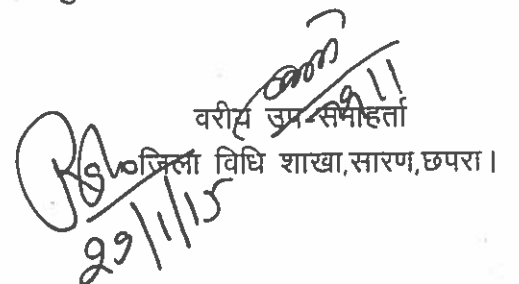 वरीय उप-समाहर्ता
जिला विधि शाखा,सारण,छपरा।
29/1/15